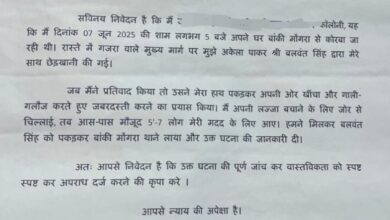 सविनय निवेदन है कि मैं
कॉलोनी, यह
कि मैं दिनांक 07 जून 2025 की शाम लगभग 5 बजे अपने घर बांकी मोंगरा से कोरबा जा
रही थी। रास्ते में गजरा वाले मुख्य मार्ग पर मुझे अकेला पाकर श्री बलवंत सिंह द्वारा मेरे
साथ छेड़खानी की गई।
जब मैंने प्रतिवाद किया तो उसने मेरा हाथ पकड़कर अपनी ओर खींचा और गाली-
गलौज करते हुए जबरदस्ती करने का प्रयास किया। मैं अपनी लज्जा बचाने के लिए जोर से
चिल्लाई, तब आस-पास मौजूद 5'-7 लोग मेरी मदद के लिए आए। हमने मिलकर बलवंत
सिंह को पकड़कर बांकी मोंगरा थाने लाया और उक्त घटना की जानकारी दी।
अतः आपसे निवेदन है कि उक्त घटना की पूर्ण जांच कर वास्तविकता को स्पष्ट
स्पष्ट कर अपराध दर्ज करने की कृपा करे ।
आपसे न्याय की अपेक्षा है।